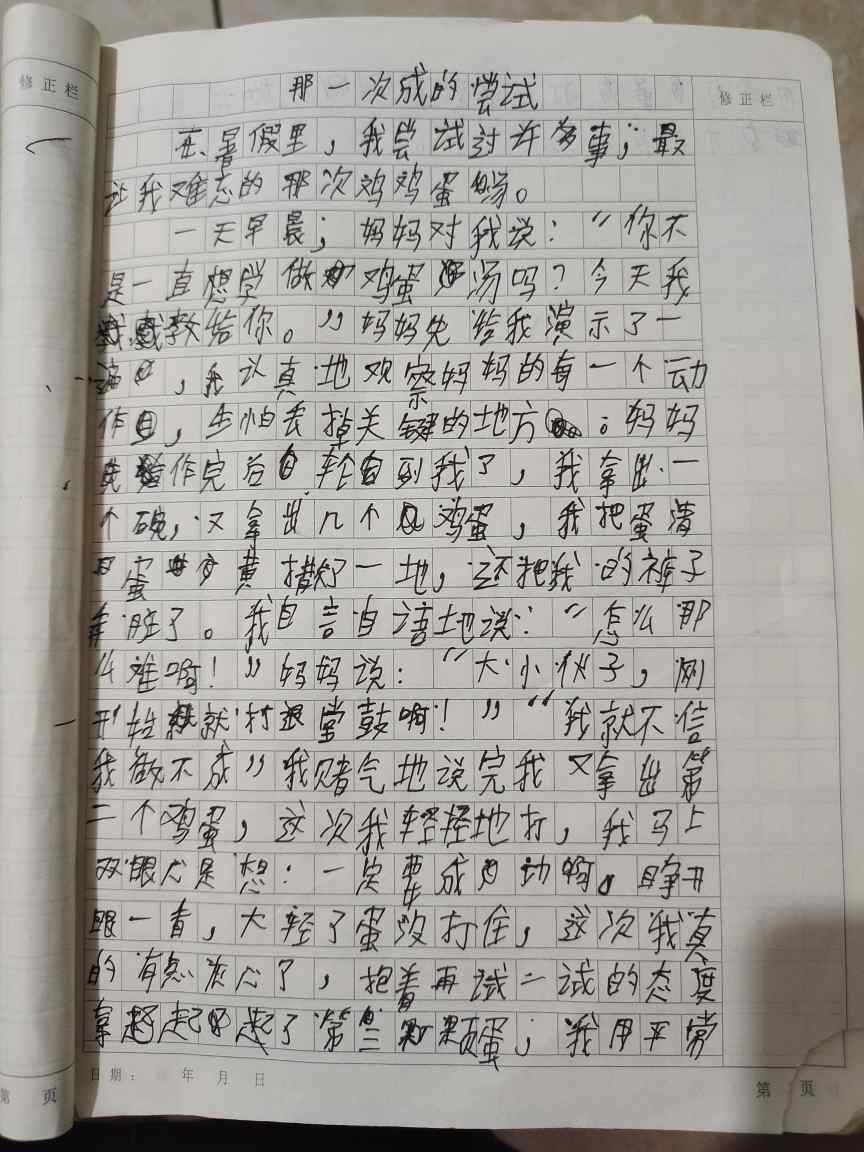 修正栏
修正栏
那一次成的尝试
在暑假里，我尝试过许多事；最
让我难忘的那次鸡鸡蛋汤。
一天早晨；妈妈对我说：“你不
是一直想学做鸡蛋汤吗？今天我
教给你。”妈妈先给我演示了一
遍，我认真地观察妈妈的每一个动
作，生怕丢掉关键的地方。妈妈
作完后轮到我了，我拿出一
个碗，又拿出几个鸡蛋，我把蛋清
蛋黄撒了一地，还把我的裤子
弄脏了。我自言自语地说：“怎么那
么难啊！”妈妈说：“大小伙子，刚
开始就打退堂鼓啊！”“我就不信
我做不成”我赌气地说完我又拿出第
二个鸡蛋，这次我轻轻地打，我马上
双眼心是想：一定要成功啊。睁开
眼一看，大轻了蛋没打住，这次我真
的有点灰心了，抱着再试二试的态度
拿起了第三颗蛋；我用平常
日期： 年 月 日
第 页
第 页